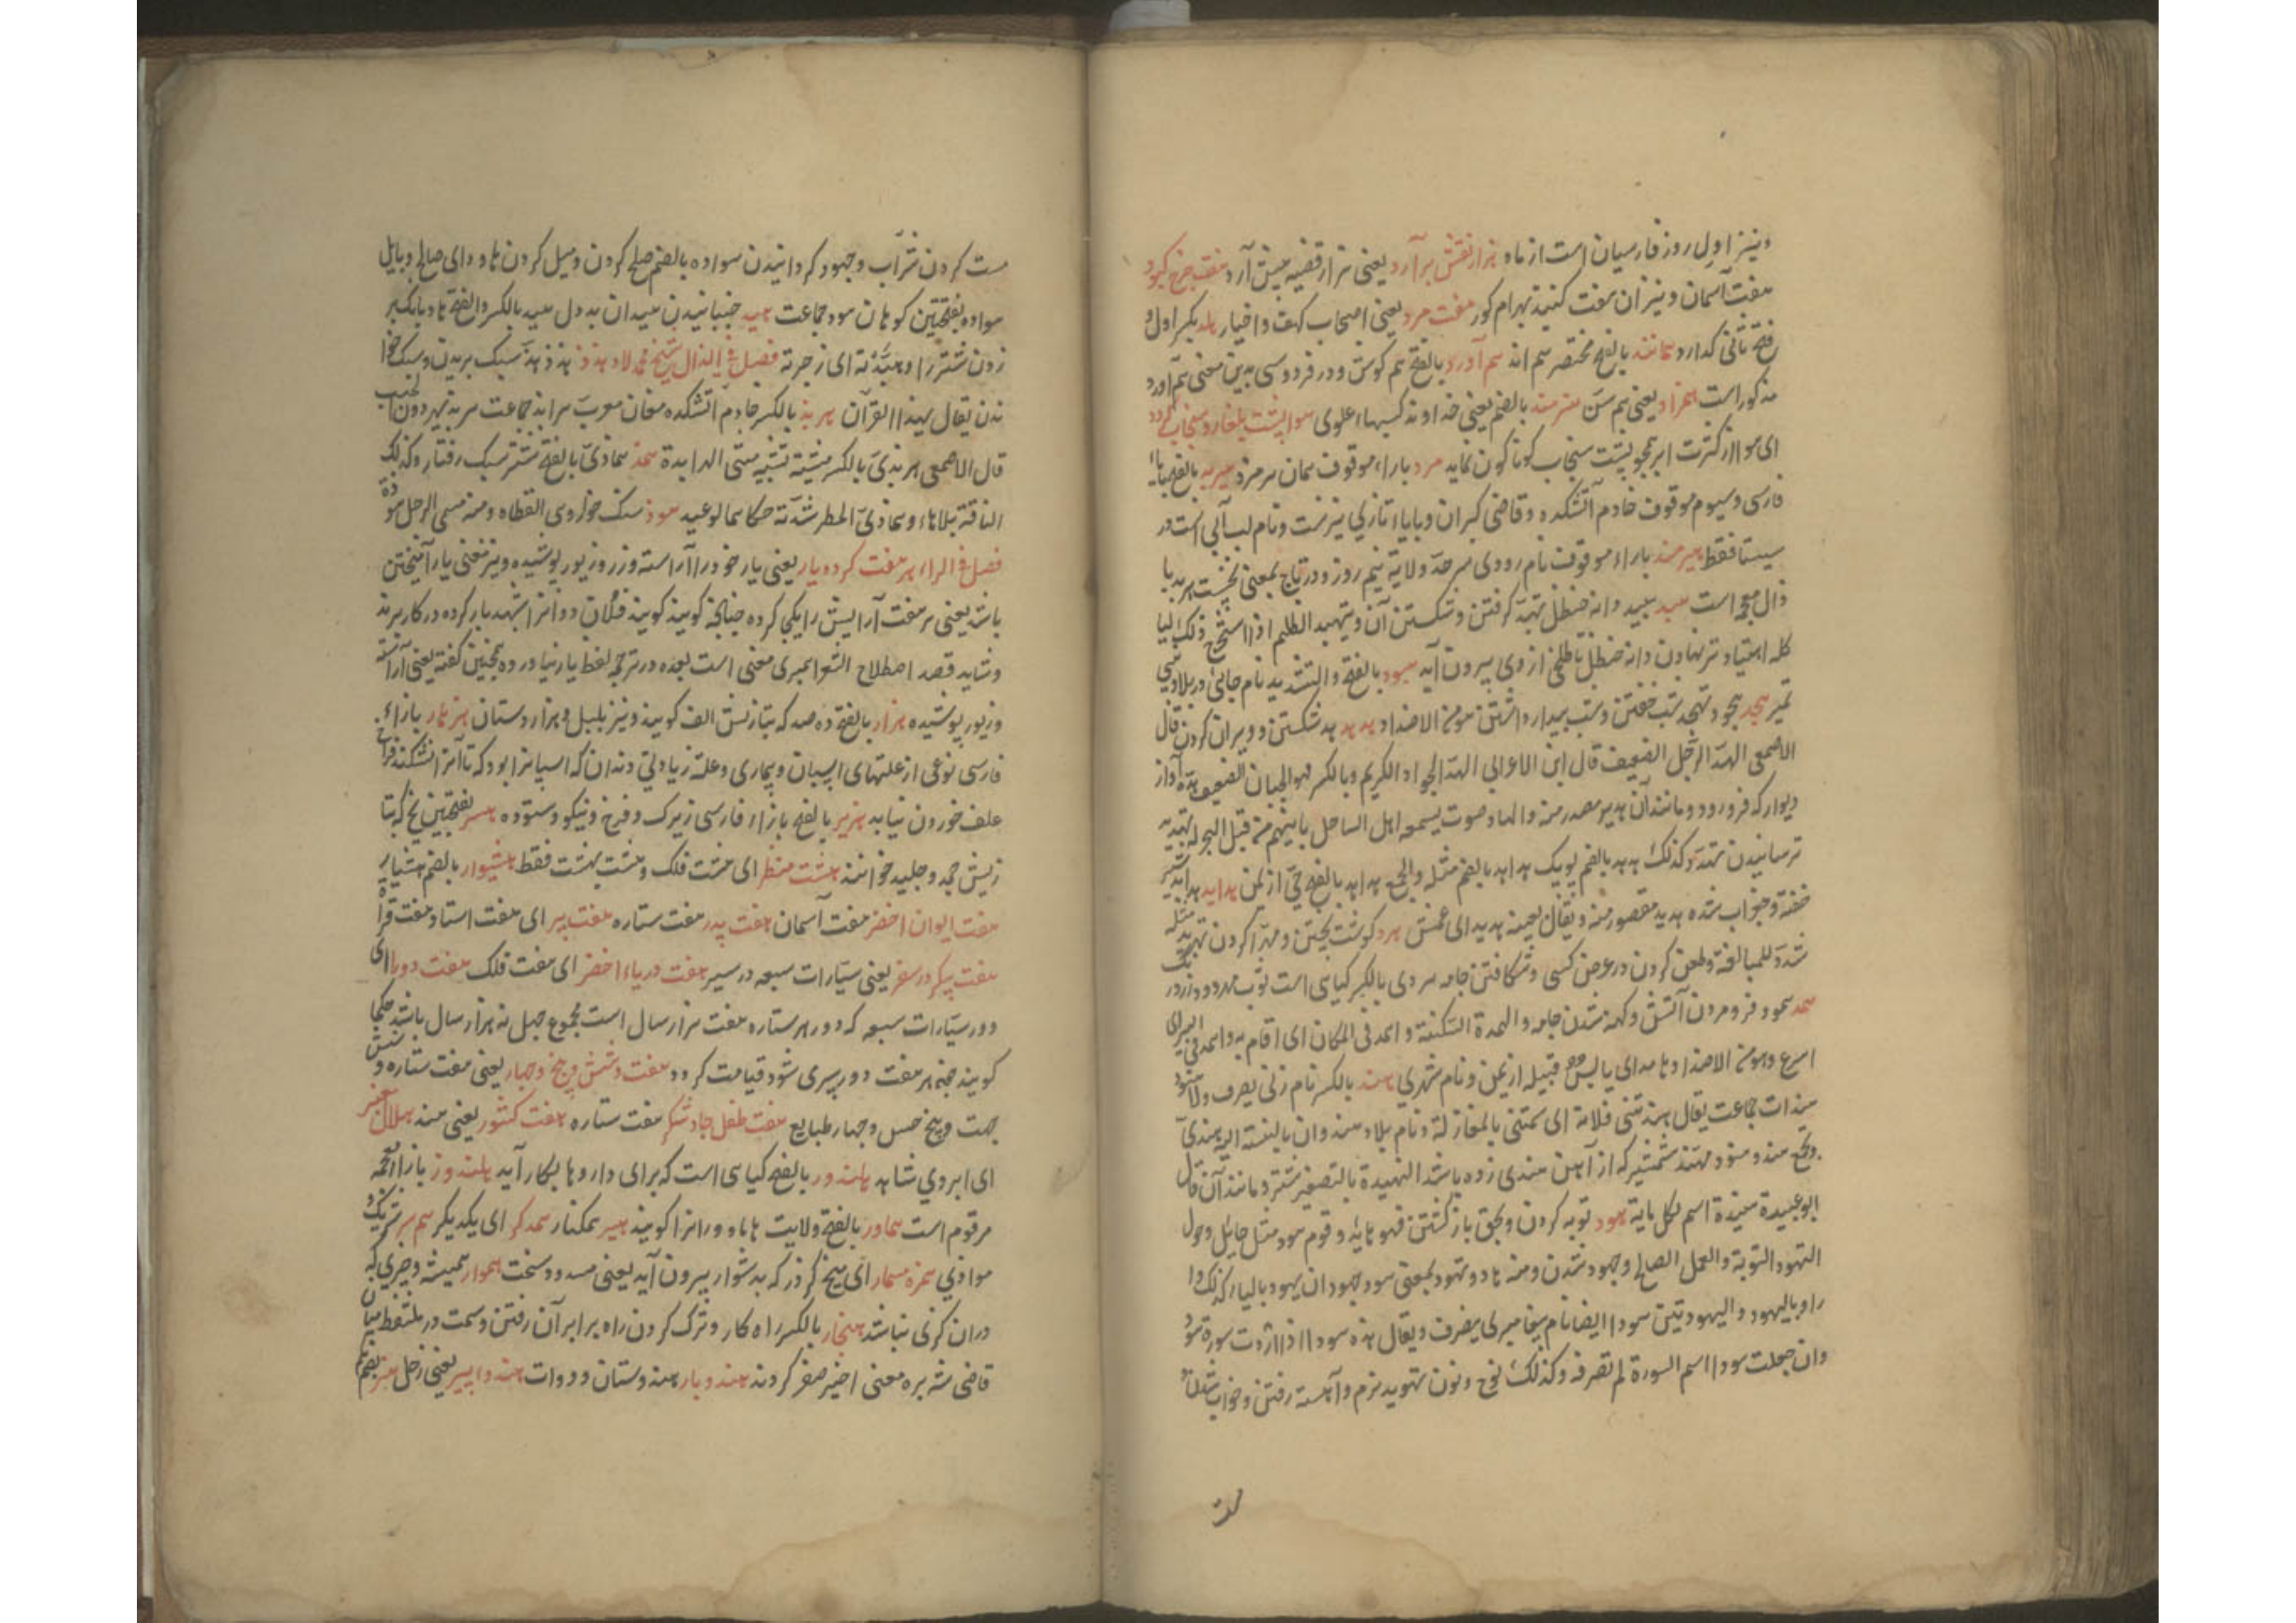 ونیز اول روز فارسیان است از ماه هزار نقش برآرد یعنی هزار قضیه پیش آرد هفت چرخ کبود
هفت آسمان و نیز ان هفت کنبد بهرام کور هفت مرد یعنی اصحاب کهف و اخیار هلد بکسر اول و
فتح ثانی کذارد همانند بالفتح مختصر هم اند هم آورد بالفتح هم کوش و در فردوسی بدین معنی هم آورد
مذکور است همزاد یعنی هم سن هنرمند بالضم یعنی خداوند کسبهاء علوی هوا پشت پلنک و سنجاب کردد
ای هوا از کثرت ابر همچو پشت سنجاب کوناکون نماید هرمزد باراء موقوف همان هرمزد هیربد بالفتح بایاء
فارسی و سیوم موقوف خادم آتشکده و قاضی کبران و بایاء تازی نیز هست و نام لب آبی است در
سیستا فقط هیرمند باراء موقوف نام رودی سرحد ولایة نیم روز و در تاج بمعنی نخست هربد با
ذال معجمه است هبد هبید دانه حنظل تهبد کرفتن و شکستن آن و تهبد الظلیم اذا استخرج ذلک لیا
کله اهتباد تر نهادن دانه حنظل تا طلخی از وی بیرون آید هبود بالفتح والتشدید نام جائی در بلاد بنی
نمیر هجد هجود تهجد شب خفتن و شب بیدار داشتن هو من الاضداد هد هدد هد شکستن و ویران کردن قال
الاصمعی الهد الرجل الضعیف قال ابن الاعرابی الهد الجواد الکریم وبالکسر فهو الجبان الضعیف هدة آواز
دیوار که فرو رود و مانند آن هدید مصدر منه والهاد صوت یسمعه اهل الساحل یاتیهم من قبل البحر له تهدید
ترسانیدن تهدد وکذلک هدهد بالضم پوپک هداهد بالضم مثله والجمع هداهد بالفتح حی از یمن هدابد هدابد شیر
خفته و جغرات شده هدبد مقصور منه و یقال بعینه هدبد ای عمش هرد کوشت پختن و مهرا کردن تهرید مثله
شدد للمبالغة و طعن کردن در عرض کسی و شکافتن جامه هردی بالکسر کیاهی است ثوب مهرود و زرد رنک
همد همود فرو مردن آتش و کهنه شدن جامه والهمدة السکتة و اهمد فی المکان ای اقام به و اهمد فی السیر ای
اسرع و هو من الاضداد هامد ای یابس قبیله از یمن و نام شهری هند بالکسر نام زنی یصرف ولا هنود
هندات جماعت یقال هندتنی فلانة ای تیمتنی بالمغازلة و نام بلاد هند وان بالنسبة الیه هندی
والجمع هند و هنود مهند شمشیر که از آهن هندی زده باشند الهنیدة بالتصغیر شتر و مانند آن قال
ابو عبیدة هنیدة اسم لکل مایة هود توبه کردن و بحق باز کشتن فهو هاید و قوم هود مثل حائل و حول
التهود التوبة والعمل الصالح و جهود شدن و منه هاد و تهود بمعنی هود جهودان یهود بالیاء کذلک وا
راد بالیهود والیهود تین هودا ایضا نام پیغامبری ینصرف و یقال هذه هود اذا اردت سورة هود
وان جعلت هودا اسم السورة لم تصرفه وکذلک نوح و نون تهوید نرم و آهسته رفتن و خواب شدن
مست
مست کردن شراب و جهود کردانیدن مهاوده بالضم صلح کردن و میل کردن هاود ای صالح و مایل
هواده بفتحتین کوهان هود جماعت هید جنبانیدن هیدان بددل هید بالکسر والفتح هاد بانک بر
زدن شتر را و هیدته ای زجرته فصل فی الذال شیخ محمد لاد هذذ هذذ هذ سبک بریدن و سبک خوا
ندن یقال یهذ القرآن هربذ بالکسر خادم آتشکده مغان معرب هرابذ جماعت
قال الاصمعی هربذی بالکسر مشیة تشبه مشی الهرابذة همذ هماذی بالفتح شتر سبک رفتار وکذلک
الناقة بلا هاء و هماذی المطر شدته حکاها ابو عبید هوذ سنک خوار وهی القطاة و منه سمی الرجل هوذة
فصل فی الراء هر هفت کرده یار یعنی یار خود را آراسته و زر و زیور پوشیده و نیز معنی یار آمیختن
باشد یعنی هر هفت آرایش را یکی کرده چنانچه کویند فلان دوا را شهد یار کرده در کار برند
و شاید قصد اصطلاح الشعرا همبری معنی است بعده در ترجمه لفظ یار نیاورده همچنین کفته یعنی آراسته
و زیور پوشیده هزار بالفتح ده صد که بتازیش الف کویند و نیز بلبل و هزاردستان هزمار بازاء
فارسی نوعی از علتهای اسپان و بیماری و علة زیادتی دندان که اسپانرا بود که تا آنرا نشکنند فراخ
علف خوردن نیابد هژیر بالفتح بازاء فارسی زیرک و فرخ و نیکو و ستوده هسر بفتحتین یخ که بتا
زیش جمد و جلید خوانند هشت منظر ای هشت فلک و هشت بهشت فقط هشیوار بالضم هشیار
هفت ایوان اخضر هفت آسمان هفت پدر هفت ستاره هفت پیر ای هفت استاد هفت قراة
هفت پیکر در سفر یعنی سیارات سبعه در سیر هفت دریاء اخضر ای هفت فلک هفت دور ای
دور سیارات سبعه که دور هر ستاره هفت هزار سال است مجموع چهل نه هزار سال باشد حکما
کویند چون هر هفت دور سپری شود قیامت کردد هفت و شش و پنج و چهار یعنی هفت ستاره و شش
جهت و پنج حس و چهار طبایع هفت طفل جادو شکر هفت ستاره هفت کشور یعنی هند هلال معنبر
ای ابروی شاهد هلندور بالفتح کیاهی است که برای داروها بکار آید هلندوز بازاء معجمه
مرقوم است هماور بالفتح ولایت هاماوران را کویند همبر همکنار همدکر ای یکدیکر هم سر شریک و
موازی همره مسمار ای میخ کرز که بدشوار بیرون آید یعنی مسدود سخت هموار همیشه و چیزی که
دران کرنی نباشد هنجار بالکسر راه کار و ترک کردن راه برابر آن رفتن و سمت در ملتقط میان
قاضی شه بره معنی اخیر صغر کردند هندوبار هندوستان و دوات هندو پیر یعنی زحل هنر بضم